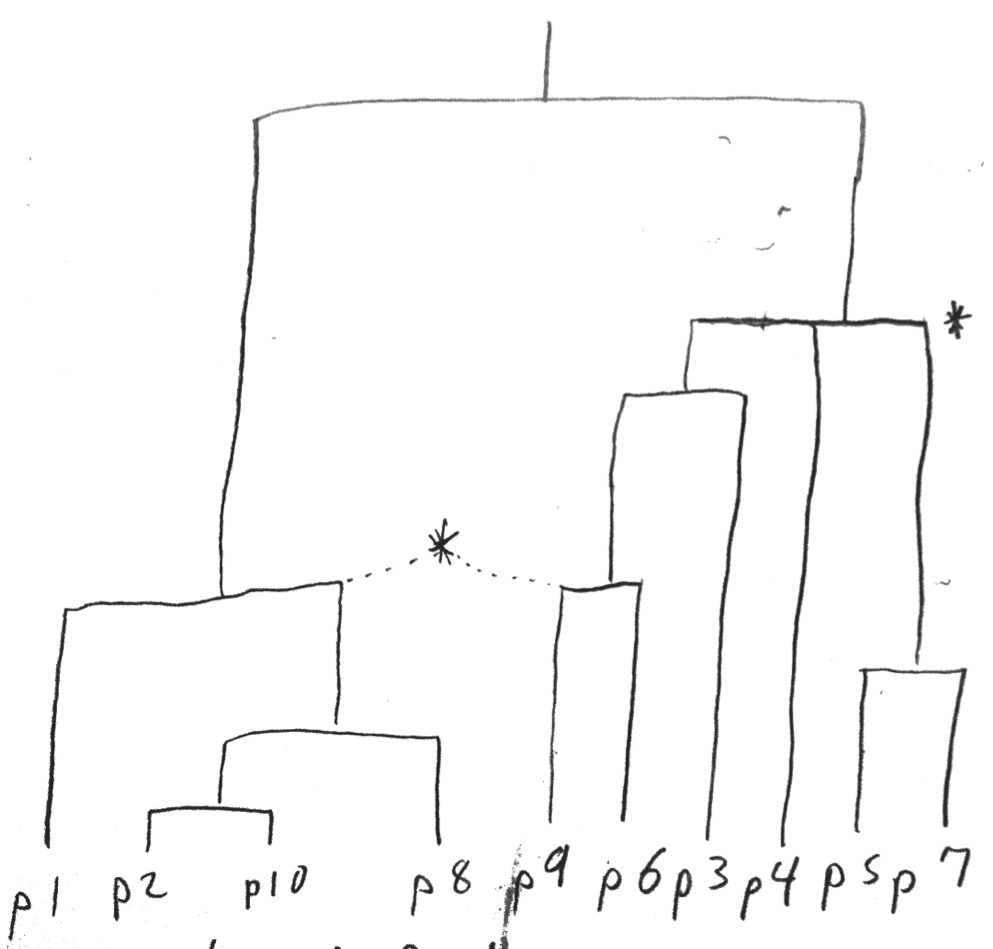 *
*
p1 p2 p10 p8 p9 p6 p3 p4 p5 p7